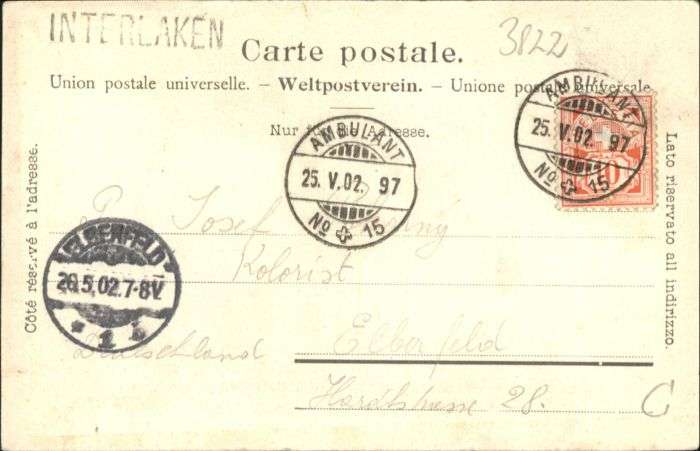 INTERLAKEN
3822
Carte postale.
Union postale universelle. – Weltpostverein. – Unione postale universale
Nur für die Adresse.
AMBULANT
25. V. 02. 97
No 15
AMBULANT
25. V. 02. 97
No 15
10
Côté réservé à l'adresse.
Lato riservato all indirizzo.
Josef
Kolorist
ELBERFELD
26.5.02.7-8V.
* 1 b
Deutschland Elberfeld
Hardtstrasse 28.
C